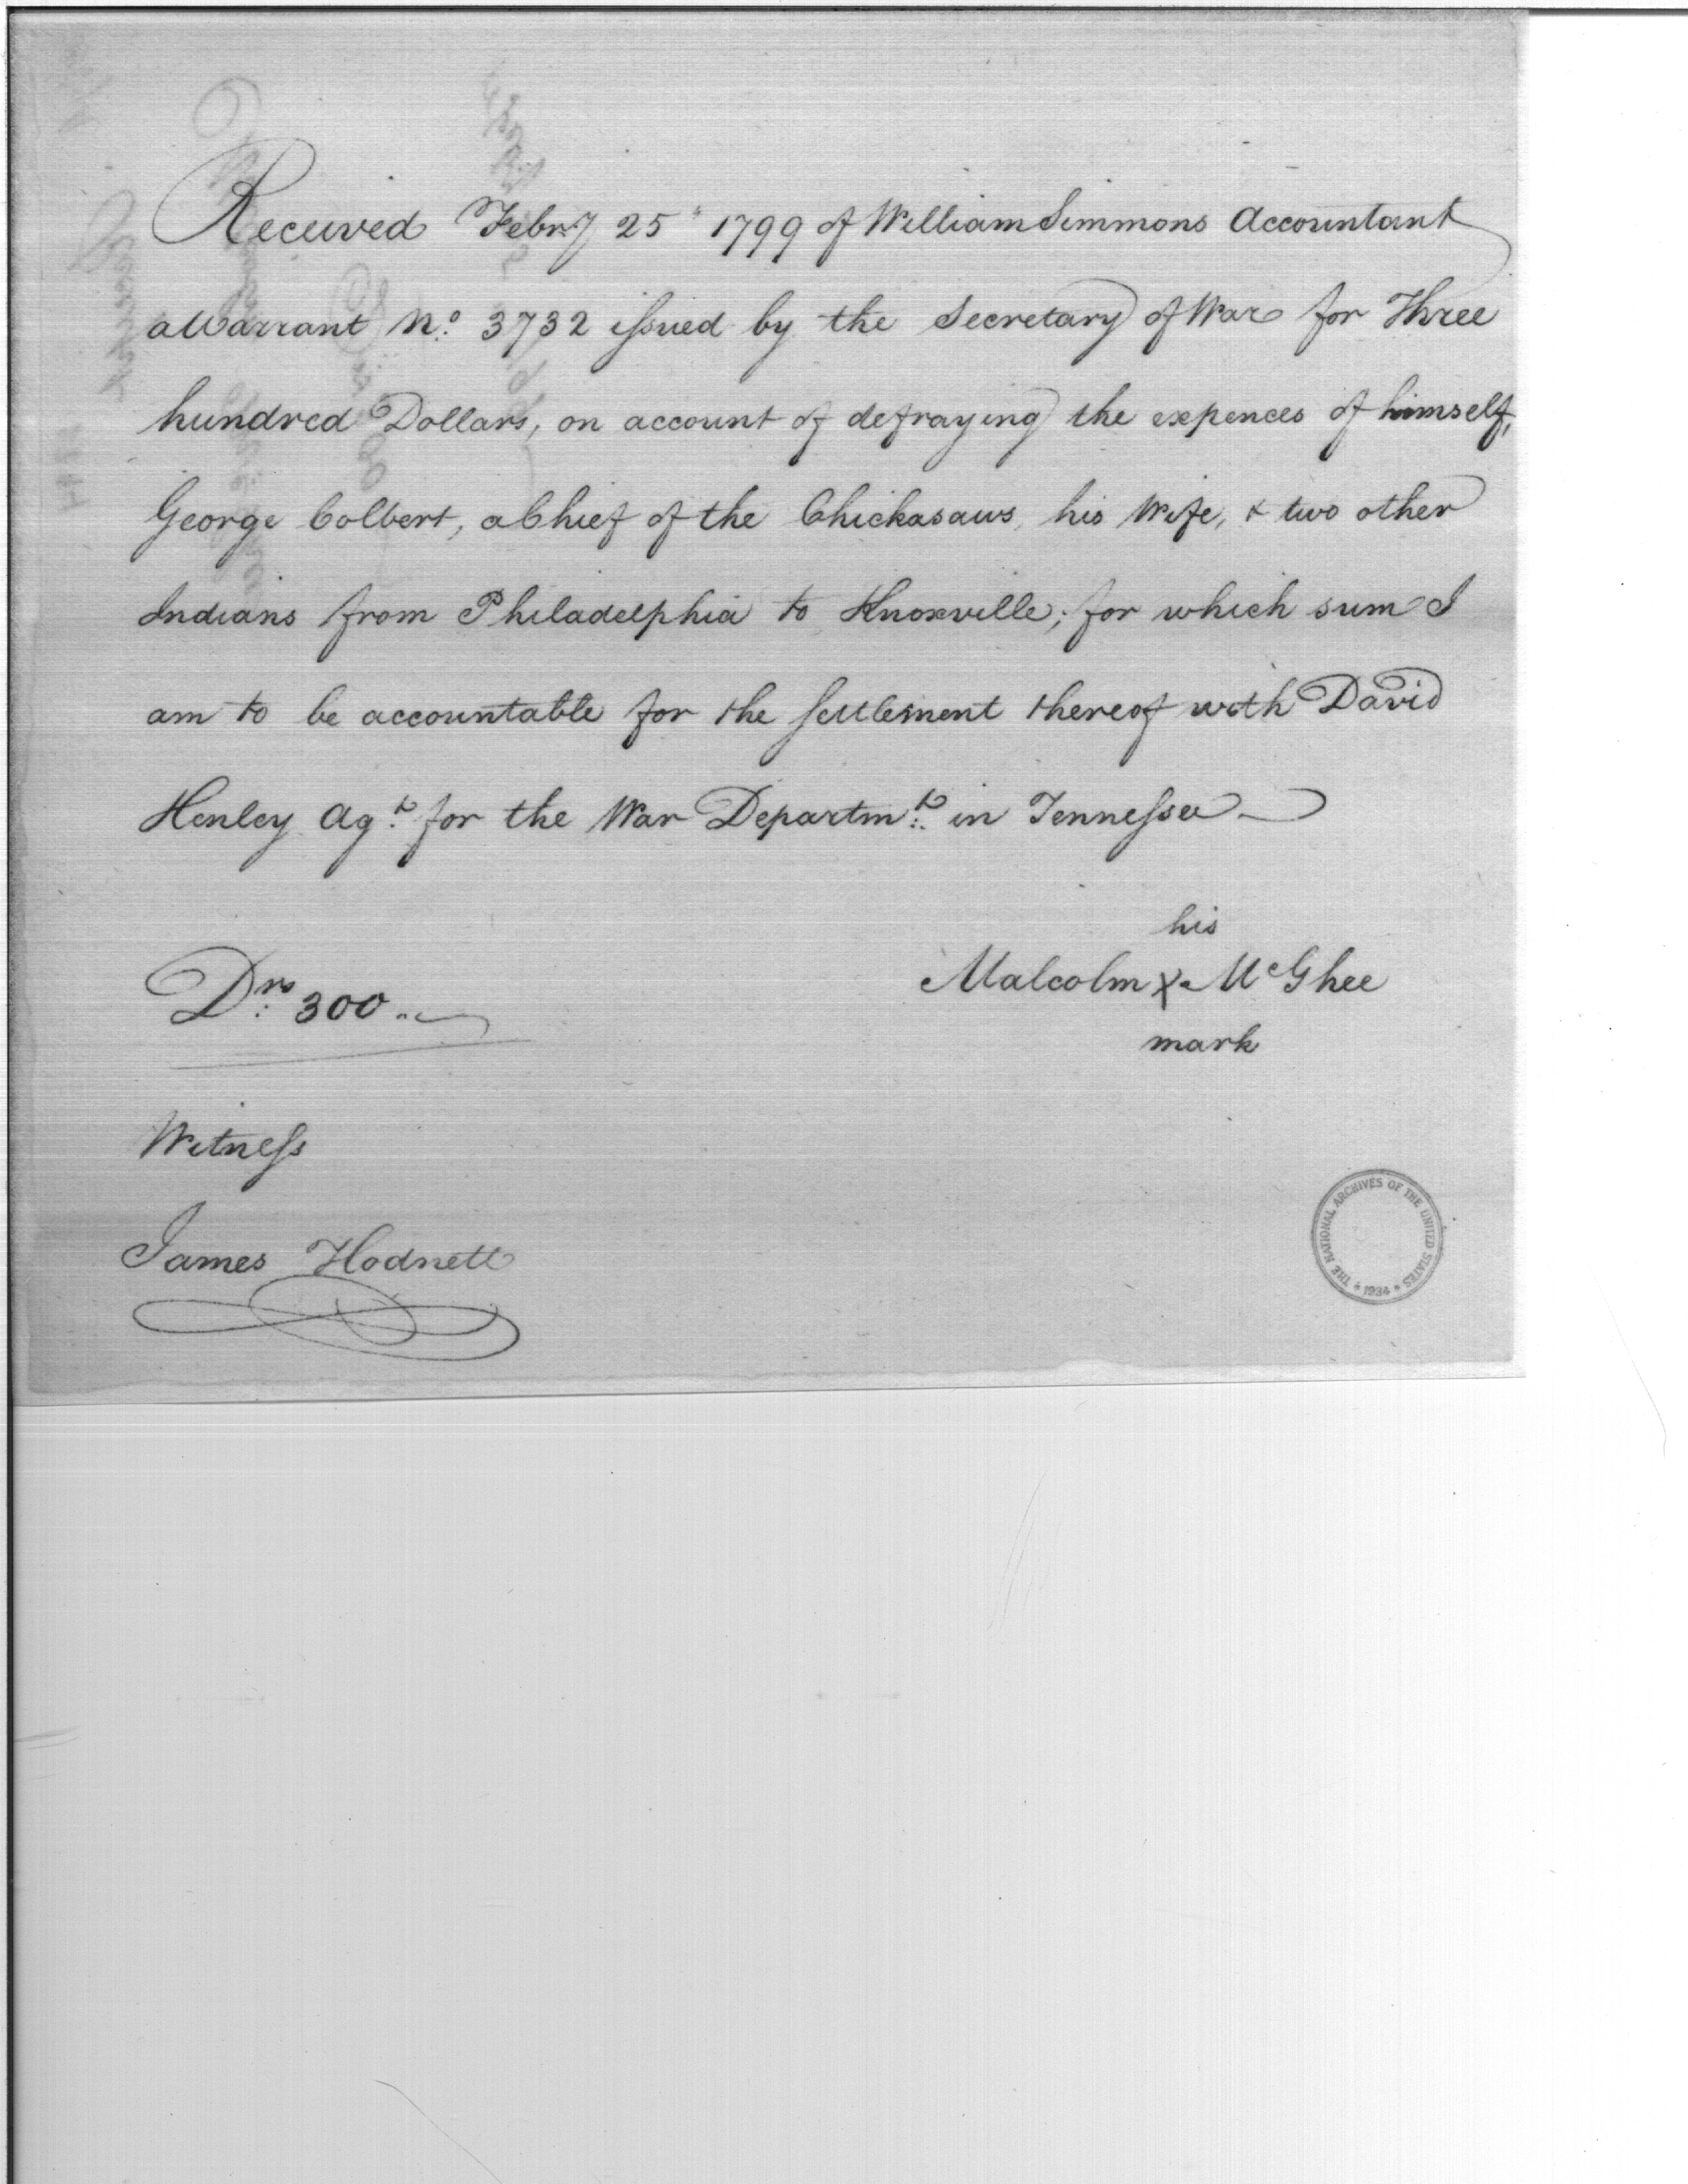 Received Febry 25th 1799 of William Simmons Accountant
a Warrant No. 3732 issued by the Secretary of War for Three
hundred Dollars, on account of defraying the expences of himself,
George Colbert, a Chief of the Chickasaws, his Wife, & two other
Indians from Philadelphia to Knoxville; for which sum I
am to be accountable for the settlement thereof with David
Henley Agt. for the War Departmt. in Tennessee
his
Drs. 300..
Malcolm X McGhee
mark
Witness
James Hodnett
THE NATIONAL ARCHIVES OF THE UNITED STATES * 1934 *